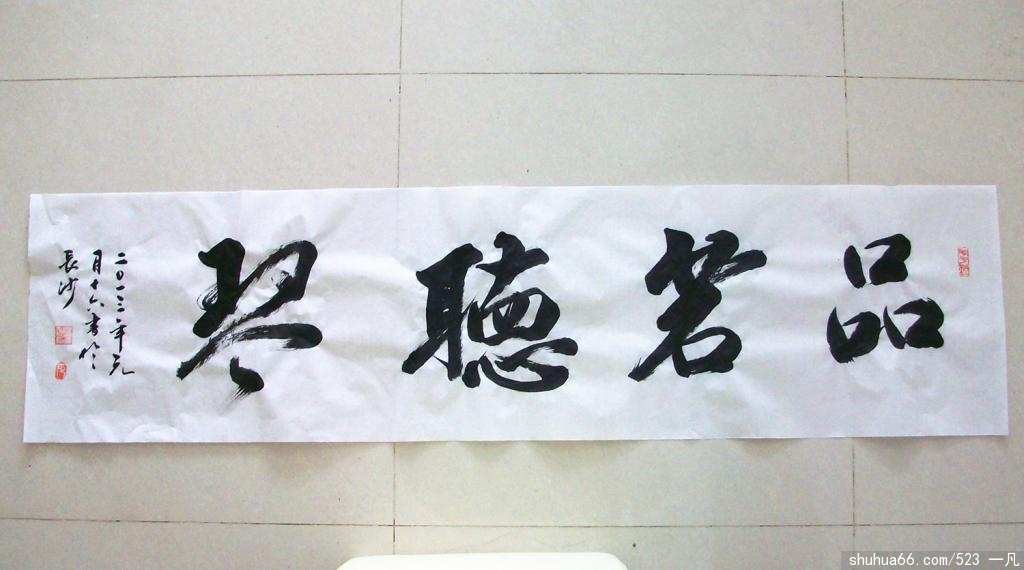 品茗聽琴
二0一三年元
月十六書於
長沙
shuhua66.com/523 一凡